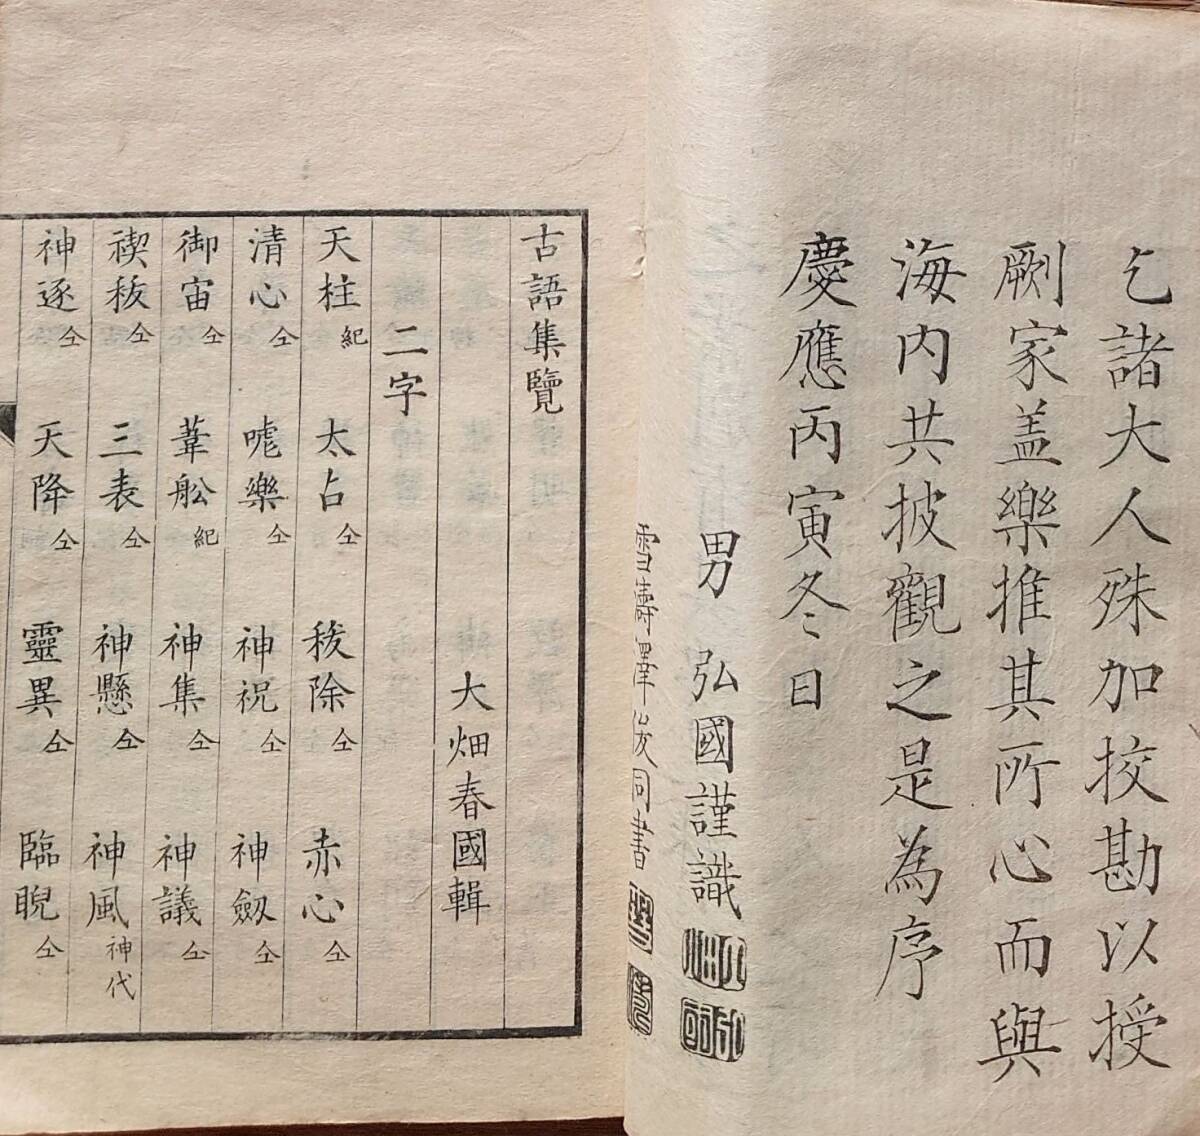 乞諸大人殊加挍勘以授
劂家盖樂推其所心而與
海内共披觀之是為序
慶應丙寅冬日
男 弘國謹識
雪濤澤俊同書
古語集覽
大畑春國輯
二字
天柱紀 太占仝 秡除仝 赤心仝
清心仝 㖸樂仝 神祝仝 神劔仝
御宙仝 葦舩紀 神集仝 神議仝
禊秡仝 三表仝 神懸仝 神風神代
神逐仝 天降仝 靈異仝 臨睨仝